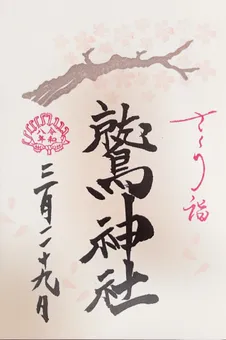 さくら詣
鷲神社
三月二十九日